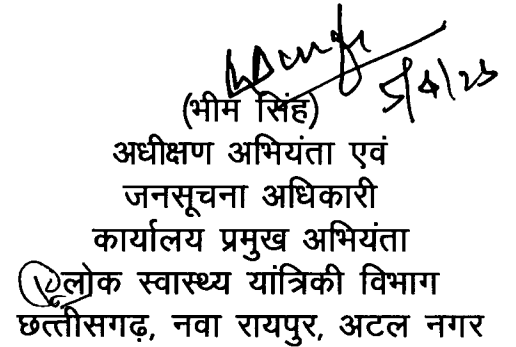 5/4/23
(भीम सिंह)
अधीक्षण अभियंता एवं
जनसूचना अधिकारी
कार्यालय प्रमुख अभियंता
लोक स्वास्थ्य यांत्रिकी विभाग
छत्तीसगढ़, नवा रायपुर, अटल नगर